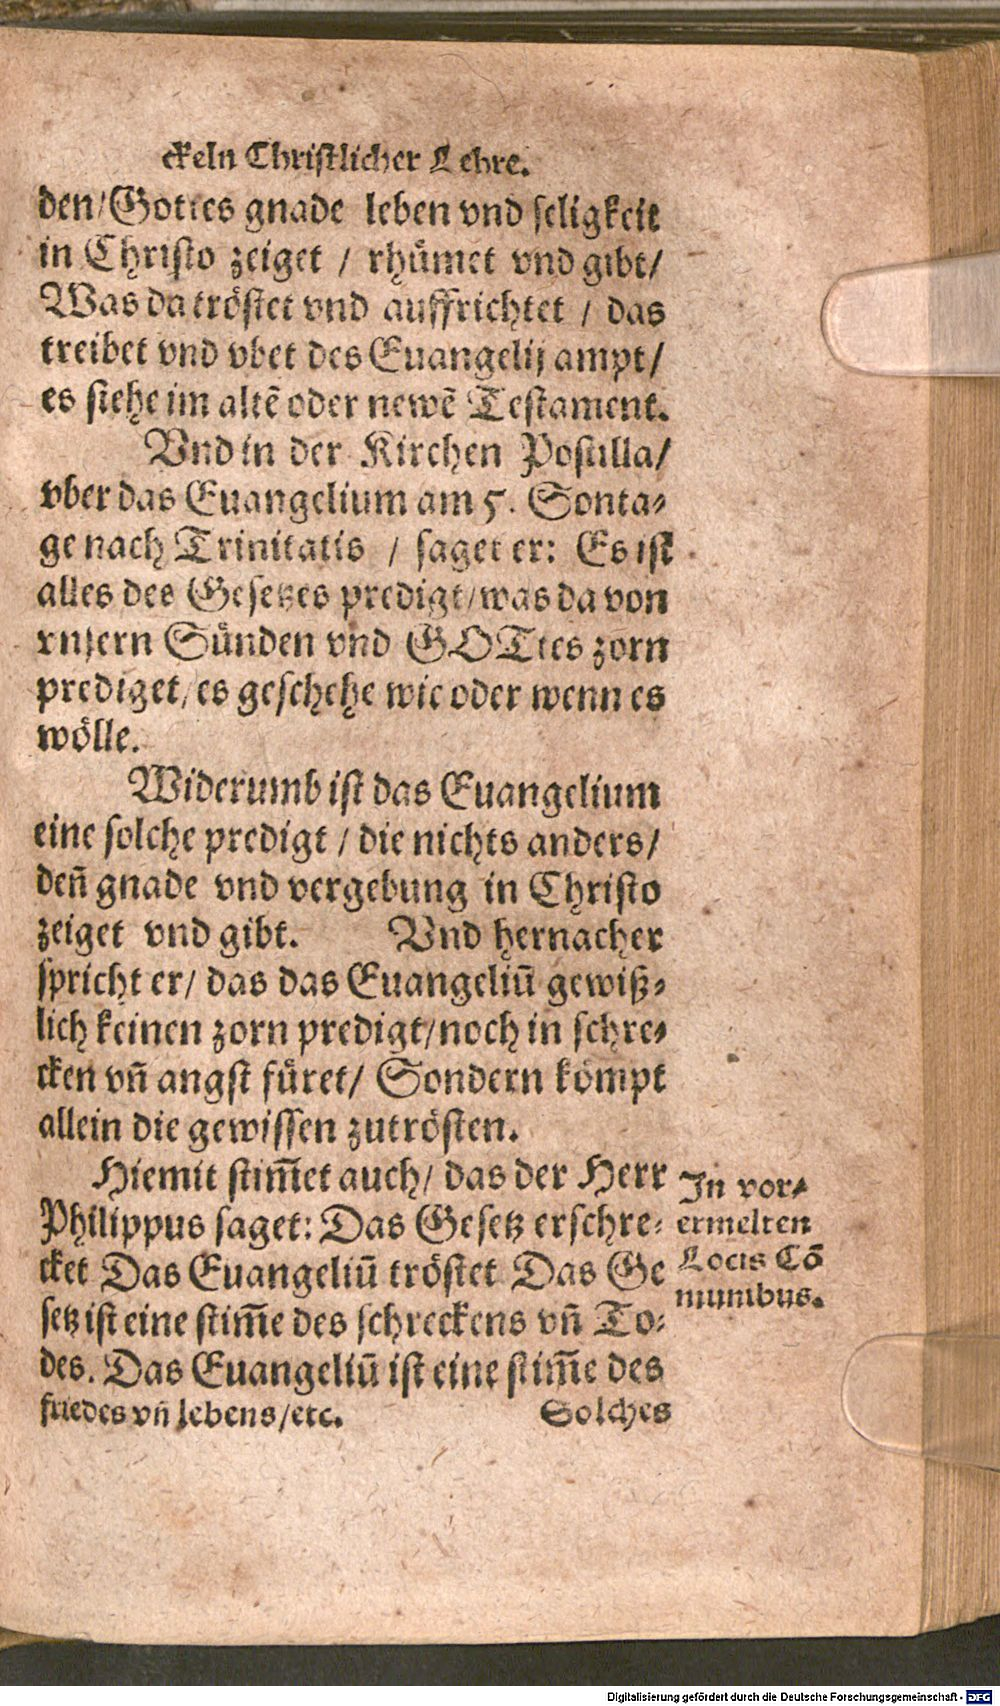 ckeln Christlicher Lehre.
den/Gottes gnade leben vnd seligkeit
in Christo zeiget / rhümet vnd gibt/
Was da tröstet vnd auffrichtet / das
treibet vnd vbet des Euangelij ampt/
es stehe im altē oder newē Testament.
Vnd in der Kirchen Postilla/
vber das Euangelium am 5. Sonta-
ge nach Trinitatis / saget er: Es ist
alles des Gesetzes predigt/was da von
vnsern Sünden vnd GOTtes zorn
prediget/es geschehe wie oder wenn es
wölle.
Widerumb ist das Euangelium
eine solche predigt / die nichts anders/
den̄ gnade vnd vergebung in Christo
zeiget vnd gibt. Vnd hernacher
spricht er/ das das Euangeliū gewiß-
lich keinen zorn predigt/noch in schre-
cken vn̄ angst füret/ Sondern kömpt
allein die gewissen zutrösten.
Hiemit stim̄et auch/ das der Herr
Philippus saget: Das Gesetz erschre-
cket Das Euangeliū tröstet Das Ge
setz ist eine stim̄e des schreckens vn̄ To-
des. Das Euangeliū ist eine stim̄e des
friedes vn̄ lebens/etc.
Solches
In vor-
ermelten
Locis Cō
munibus.
Digitalisierung gefördert durch die Deutsche Forschungsgemeinschaft - DFG